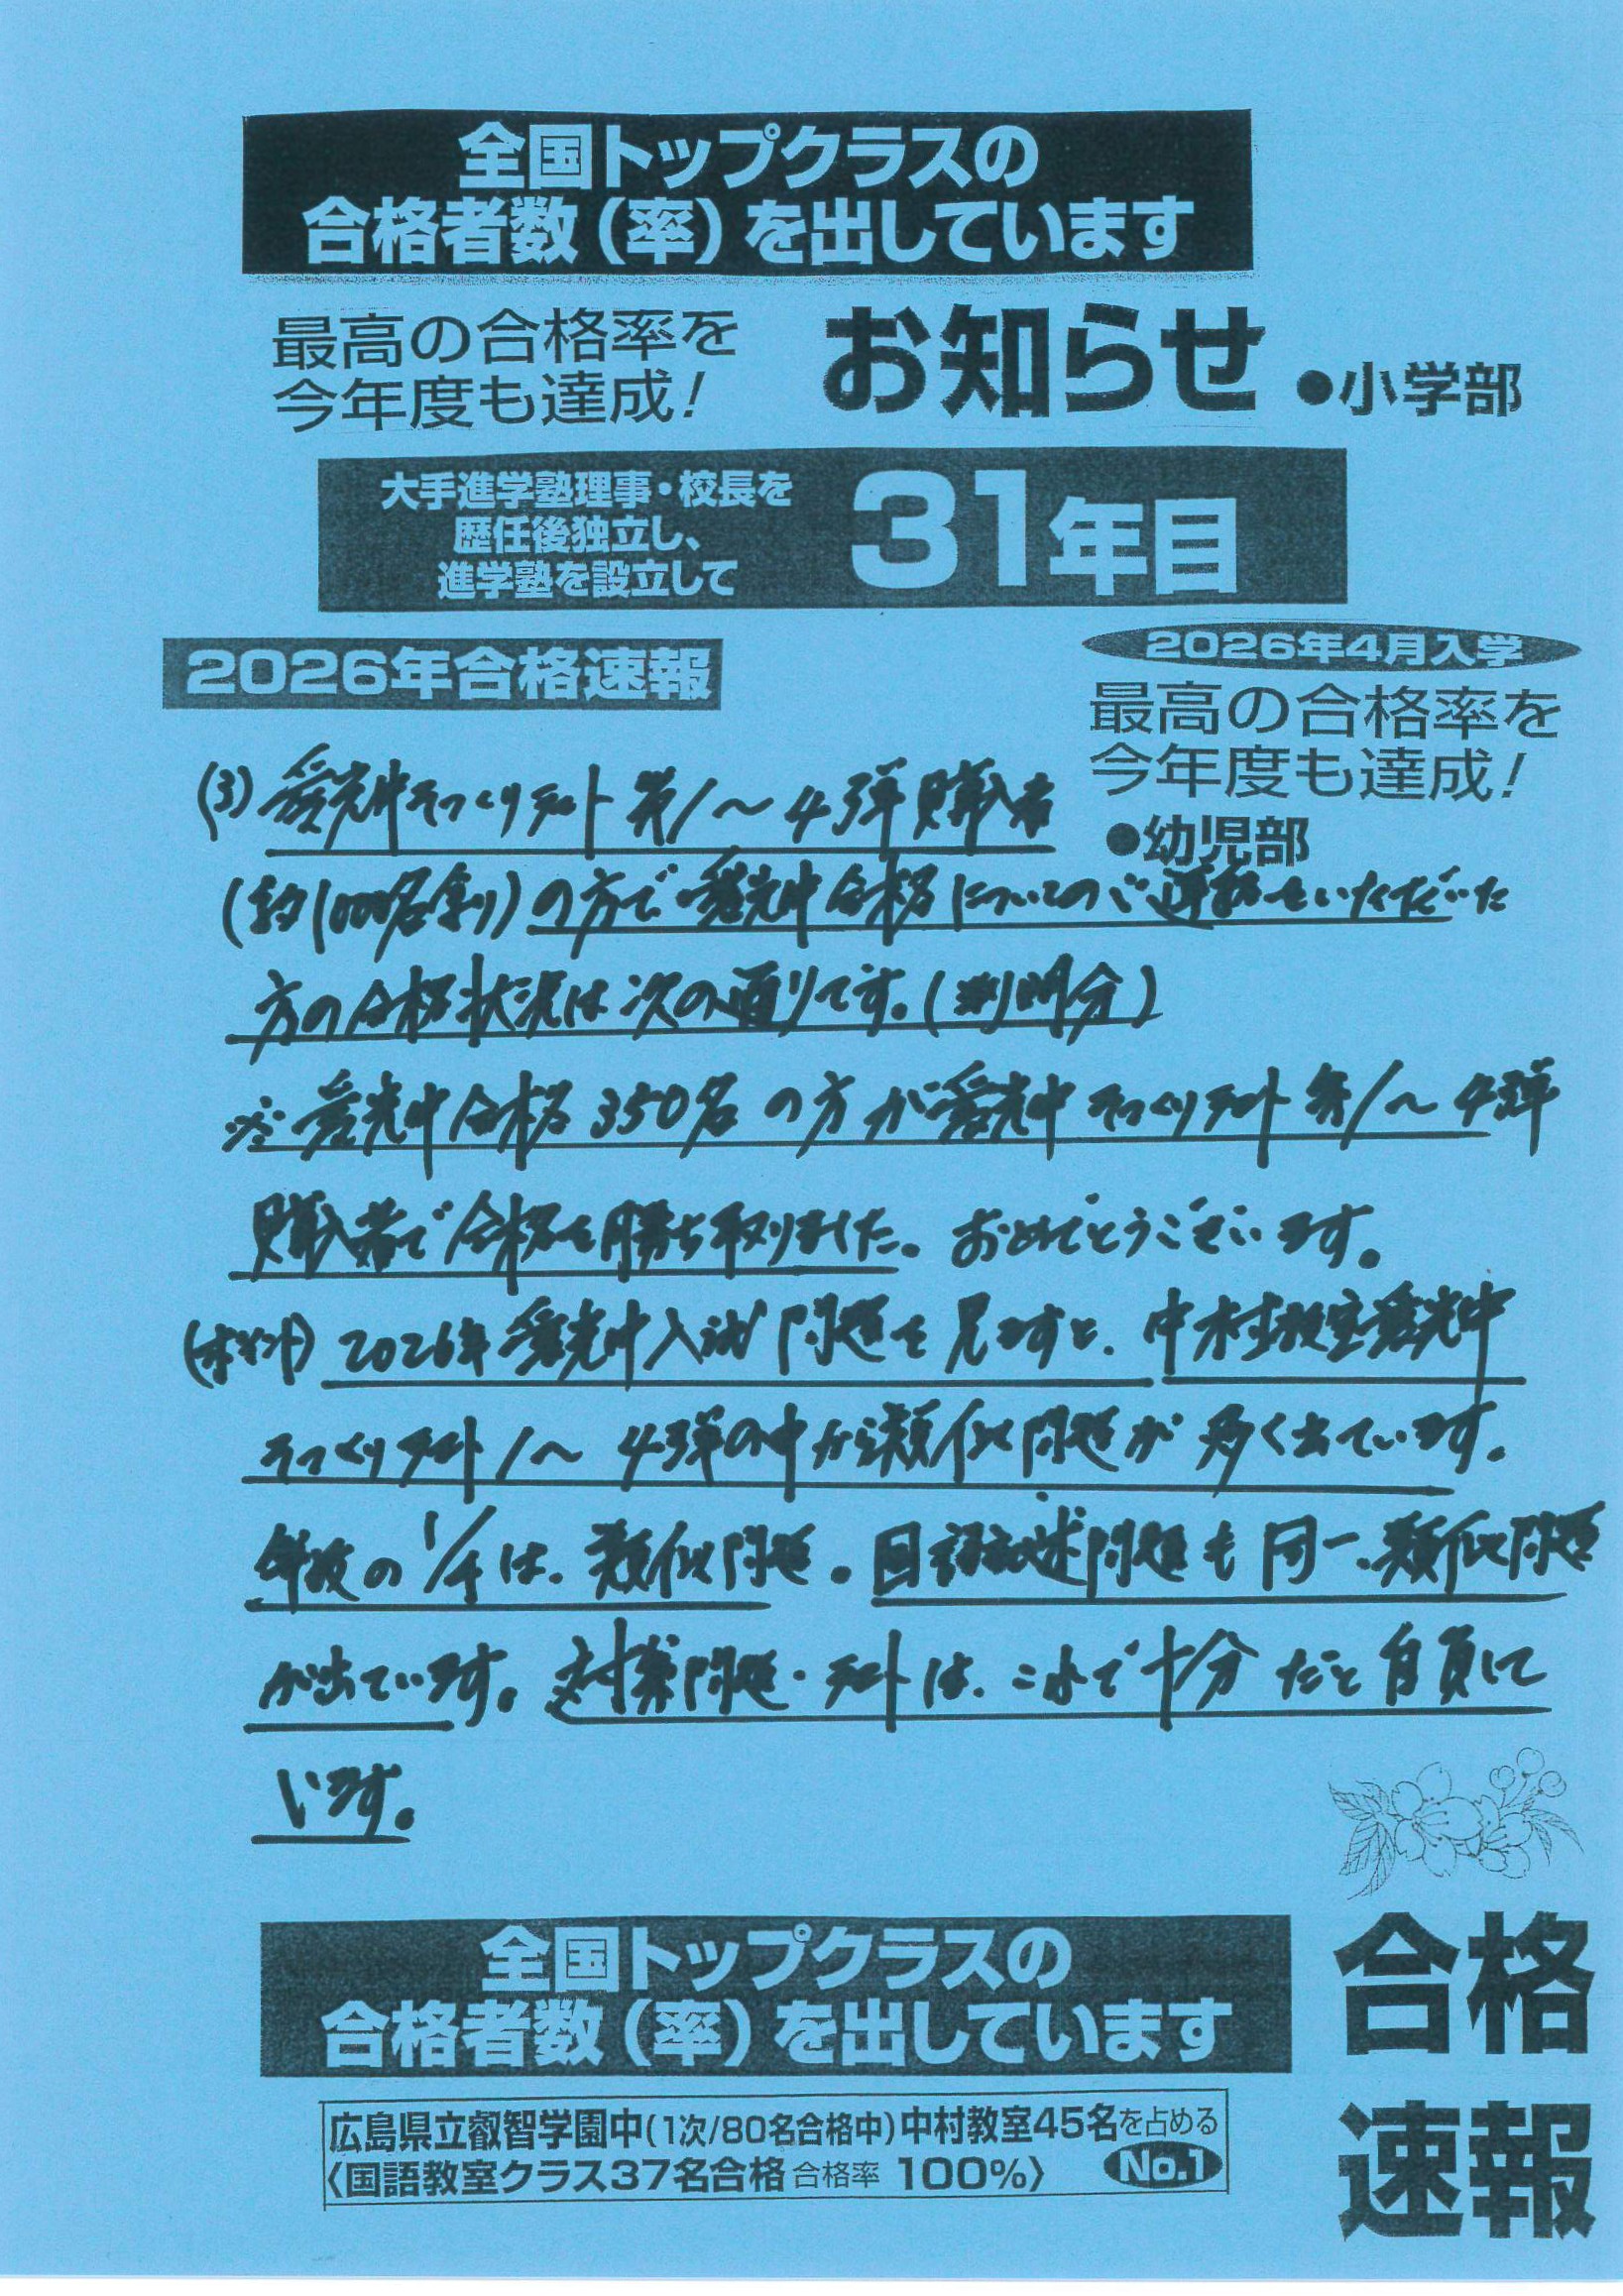 全国トップクラスの
合格者数（率）を出しています
最高の合格率を
今年度も達成！
お知らせ ●小学部
大手進学塾理事・校長を
歴任後独立し、
進学塾を設立して
31年目
2026年合格速報
2026年4月入学
最高の合格率を
今年度も達成！
●幼児部
(3) 愛光中そっくりテスト第1～4弾購入者
(約1000名割)の方で愛光中合格についてのご連絡をいただいた
方の合格状況は次の通りです。(判明分)
※愛光中合格350名の方が愛光中そっくりテスト第1～4弾
購入者で合格を勝ち取りました。おめでとうございます。
(ポイント) 2026年愛光中入試問題を見ますと、中村教室愛光中
そっくりテスト1～4弾の中から類似問題が多く出ています。
算数の は、類似問題。国語記述問題も同一、類似問題
が出ています。対策問題・テストは、これで十分だと自負して
います。
全国トップクラスの
合格者数（率）を出しています
合格
速報
広島県立叡智学園中(1次/80名合格中)中村教室45名を占める
〈国語教室クラス37名合格 合格率 100%〉 No.1